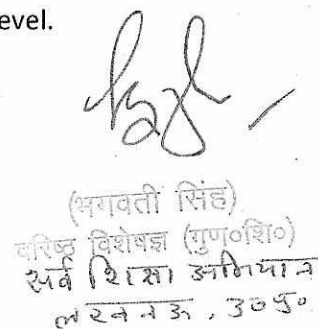 evel.
(भगवती सिंह)
वरिष्ठ विशेषज्ञ (गुण०शि०)
सर्व शिक्षा अभियान
लखनऊ, उ०प्र०